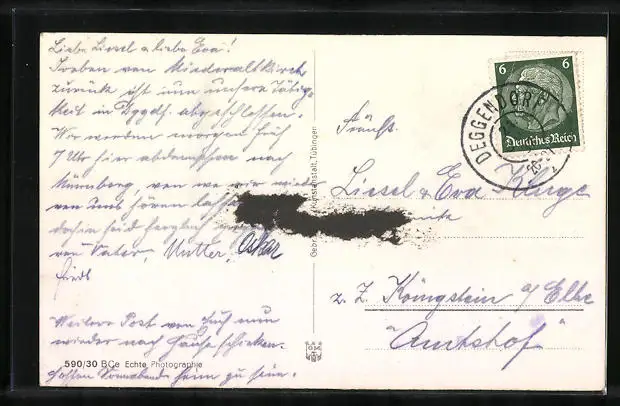 Liebe Liesel u liebe Eva!
Soeben von Niederaltkirch
zurück ist nun unsere Tätig-
keit in Dggdf. abgeschlossen.
Wir werden morgen früh
7 Uhr hier abdampfen nach
Nürnberg, von wo wir wieder
von uns hören lassen
dahin seid herzlich
von Vater, Mutter, Oskar
Friedl
Weitere Post von Euch nun
wieder nach Hause schicken.
Hoffen Sonnabend heim zu sein.
590/30 BCe Echte Photographie
Gebr. Kunstanstalt, Tübingen
6 6
Deutsches Reich
DEGGENDORF
Fräul.
Liesel & Eva Kluge
z. Z. Königstein a/ Elbe
"Amtshof"